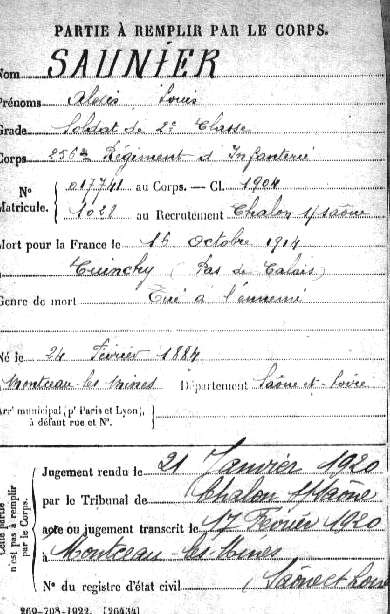 PARTIE À REMPLIR PAR LE CORPS.
Nom SAUNIER
Prénoms Alexis Louis
Grade Soldat de 2e Classe
Corps 256me Régiment d'Infanterie
N° Matricule. 017741 au Corps. — Cl. 1904
1022 au Recrutement Chalon s/Saône
Mort pour la France le 16 octobre 1914
à Cuinchy (Pas de Calais)
Genre de mort Tué à l'ennemi
Né le 24 Février 1884
Montceau-les-Mines Département Saône-et-Loire
Arrt municipal (pr Paris et Lyon),
à défaut rue et N°.
Cette partie n'est pas à remplir par le Corps.
Jugement rendu le 21 Janvier 1920
par le Tribunal de Chalon s/Saône
acte ou jugement transcrit le 17 Février 1920
à Montceau-les-Mines
N° du registre d'état civil Saône et Loire
269-708-1922. [26434]